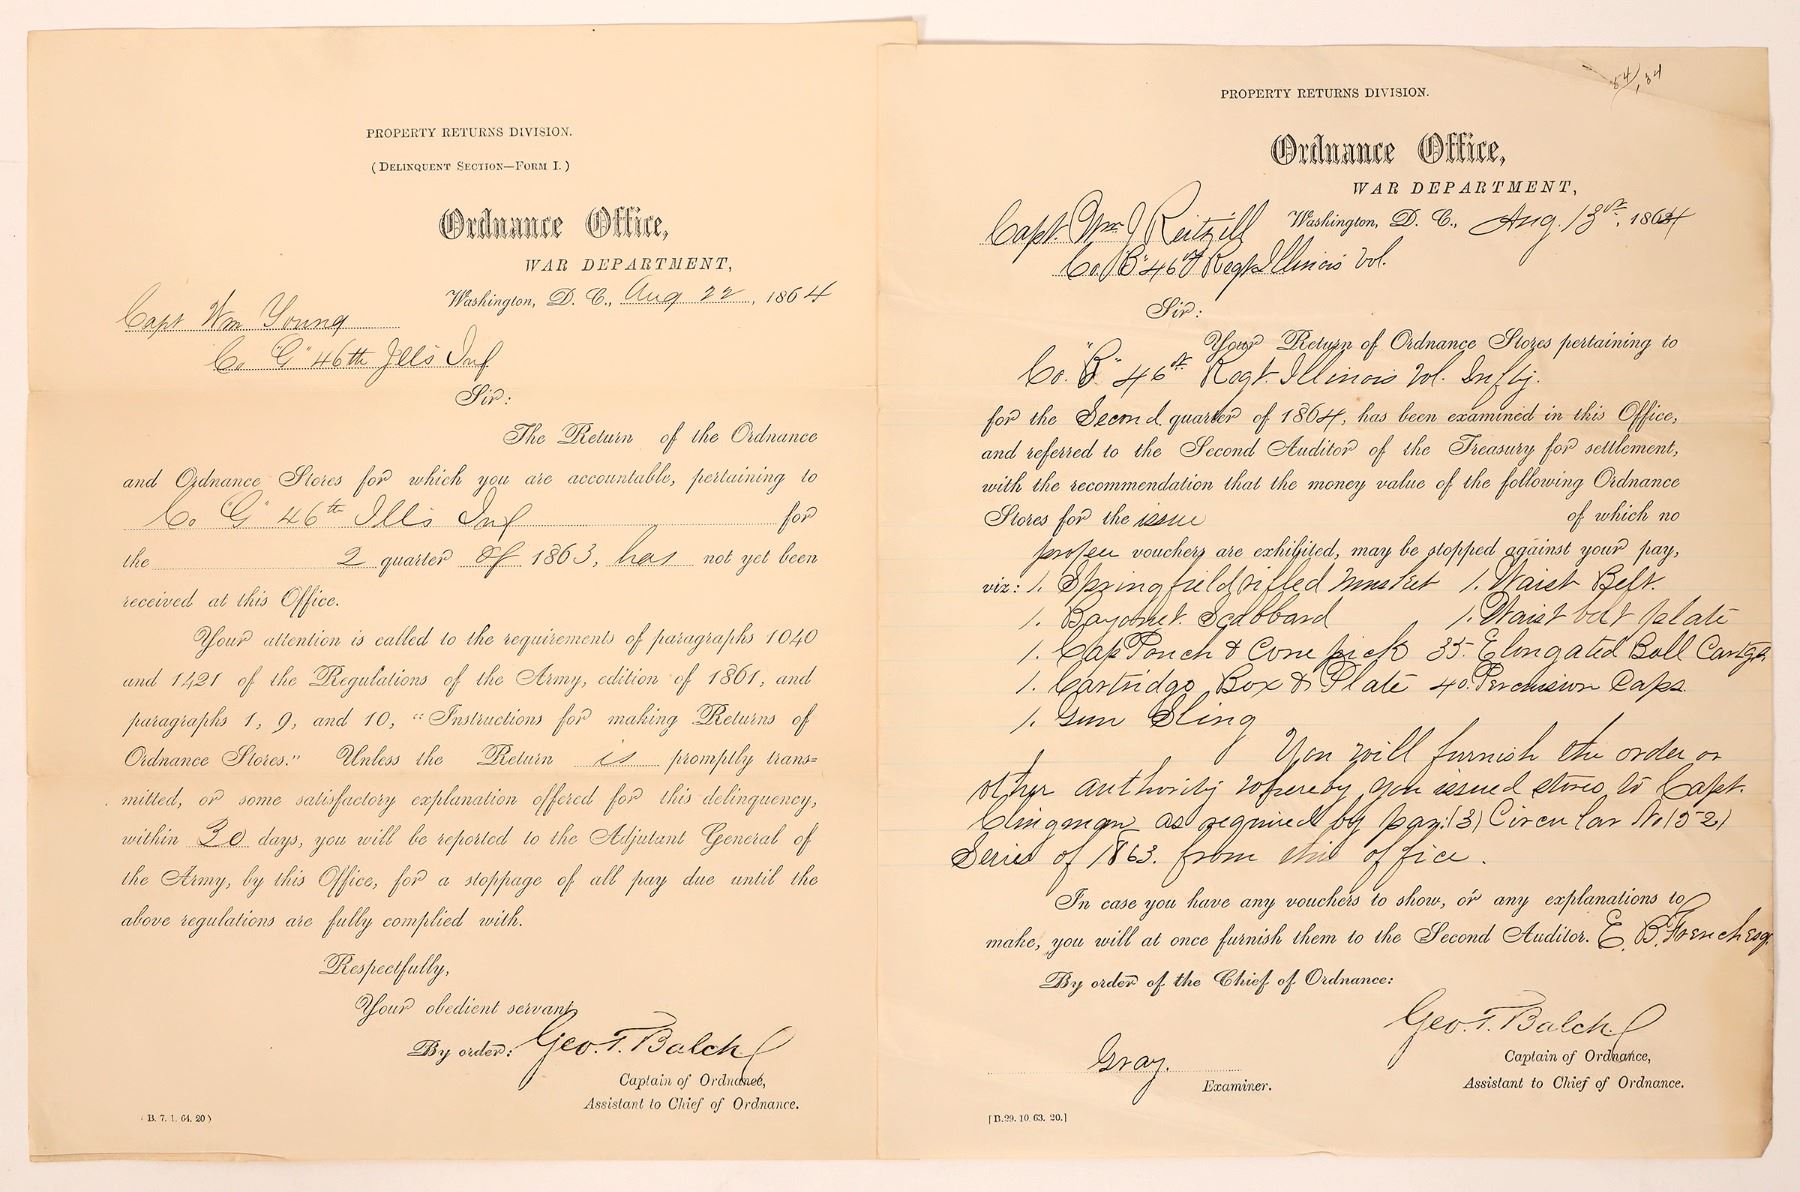 PROPERTY RETURNS DIVISION.
(DELINQUENT SECTION—FORM I.)
Ordnance Office,
WAR DEPARTMENT,
Washington, D. C., Aug 22, 1864
Capt Wm Young
Co "G" 46th Ills Inf
Sir:
The Return of the Ordnance
and Ordnance Stores for which you are accountable, pertaining to
Co "G" 46th Ills Inf for
the 2 quarter of 1863, has not yet been
received at this Office.
Your attention is called to the requirements of paragraphs 1040
and 1421 of the Regulations of the Army, edition of 1861, and
paragraphs 1, 9, and 10, "Instructions for making Returns of
Ordnance Stores." Unless the Return is promptly trans=
mitted, or some satisfactory explanation offered for this delinquency,
within 30 days, you will be reported to the Adjutant General of
the Army, by this Office, for a stoppage of all pay due until the
above regulations are fully complied with.
Respectfully,
Your obedient servant
By order: Geo. T. Balch
Captain of Ordnance,
Assistant to Chief of Ordnance.
(B. 7. 1. 64. 20)
PROPERTY RETURNS DIVISION.
Ordnance Office,
WAR DEPARTMENT,
Washington, D. C., Aug. 13th, 1864
Capt. Wm J Reitzill
Co. "B" 46th Regt Illinois Vol.
Sir:
Your Return of Ordnance Stores pertaining to
Co. "B" 46th Regt. Illinois Vol. Infty.
for the Second quarter of 1864, has been examined in this Office,
and referred to the Second Auditor of the Treasury for settlement,
with the recommendation that the money value of the following Ordnance
Stores for the issue of which no
proper vouchers are exhibited, may be stopped against your pay,
viz: 1. Springfield rifled musket 1. Waist Belt.
1. Bayonet Scabbard 1. Waist belt plate
1. Cap Pouch & Cone pick 35. Elongated Ball Cartgs
1. Cartridge Box & Plate 40. Percusion Caps.
1. Gun Sling
You will furnish the order or
other authority whereby you issued stores to Capt.
Clingman as required by par. (3) Circular No (52)
Series of 1863. from this office.
In case you have any vouchers to show, or any explanations to
make, you will at once furnish them to the Second Auditor. E. B. French Esq.
By order of the Chief of Ordnance:
Geo. T. Balch
Captain of Ordnance,
Assistant to Chief of Ordnance.
Gray.
Examiner.
[B.29. 10. 63. 20.]